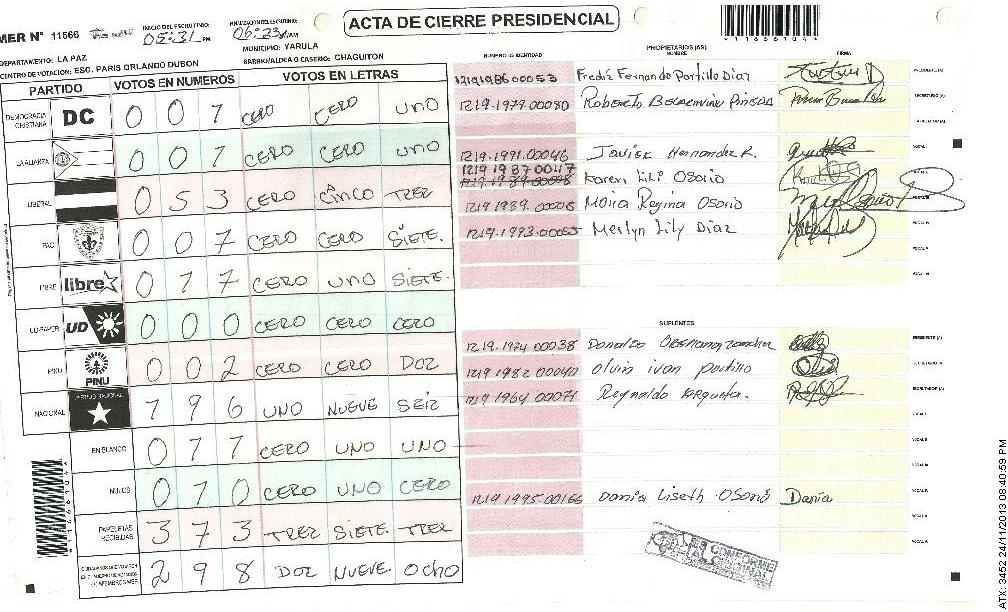 ACTA DE CIERRE PRESIDENCIAL
MER Nº 11566
INICIO DEL ESCRUTINIO: 05:31 PM
FINALIZACION DEL ESCRUTINIO: 06:23
DEPARTAMENTO: LA PAZ
MUNICIPIO: YARULA
CENTRO DE VOTACION: ESC. PARIS ORLANDO DUBON
BARRIO/ALDEA O CASERIO: CHAGUITON
PARTIDO VOTOS EN NUMEROS VOTOS EN LETRAS
DEMOCRACIA CRISTIANA DC 0 0 1 CERO CERO UNO
LA ALIANZA 0 0 1 CERO CERO UNO
LIBERAL 0 5 3 CERO CINCO TREZ
PAC 0 0 7 CERO CERO SIETE.
LIBRE libre 0 1 7 CERO UNO SIETE.
UD-FAPER UD 0 0 0 CERO CERO CERO
PINU PINU 0 0 2 CERO CERO DOZ
NACIONAL PARTIDO NACIONAL 1 9 6 UNO NUEVE SEIZ
EN BLANCO 0 1 1 CERO UNO UNO
NULOS 0 1 0 CERO UNO CERO
PAPELETAS RECIBIDAS 3 7 3 TREZ SIETE TREZ
2 9 8 DOZ NUEVE OCHO
PROPIETARIOS (AS)
NUMERO DE IDENTIDAD NOMBRE FIRMA
1219198600053 Fredis Fernando Portillo Diaz PRESIDENTE (A)
1219-1979-00080 Roberto Pineda SECRETARIO (A)
ESCRUTADOR (A)
1219.1991.00046 Javier Hernandez R. VOCAL I
1219 1987 00117 Karen Lili Osorio VOCAL II
Regina Osorio
1219-1993-00055 Merlyn Lily Diaz
VOCAL V
VOCAL VI
SUPLENTES
1219.1974 00038 Donaldo PRESIDENTE (A)
1219 1982 00040 olvin ivan portillo SECRETARIO (A)
1219 1964 00071 Reynaldo Argueta. ESCRUTADOR (A)
VOCAL I
VOCAL II
VOCAL III
1219 1995.00166 Dania Liseth Osorio Dania VOCAL IV
VOCAL V
VOCAL VI
ES CONFORME
ORIGINAL
1 1 6 6 6 1 0 4 4
ATX: 3452 24/11/2013 08:40:59 PM